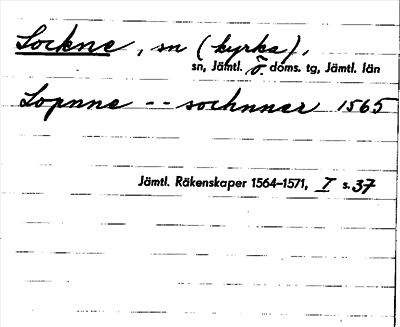 Sockne, sn (kyrka),
sn, Jämtl. ö. doms. tg, Jämtl. län
Lopnne -- sochnner 1565
Jämtl. Räkenskaper 1564–1571, I s. 37